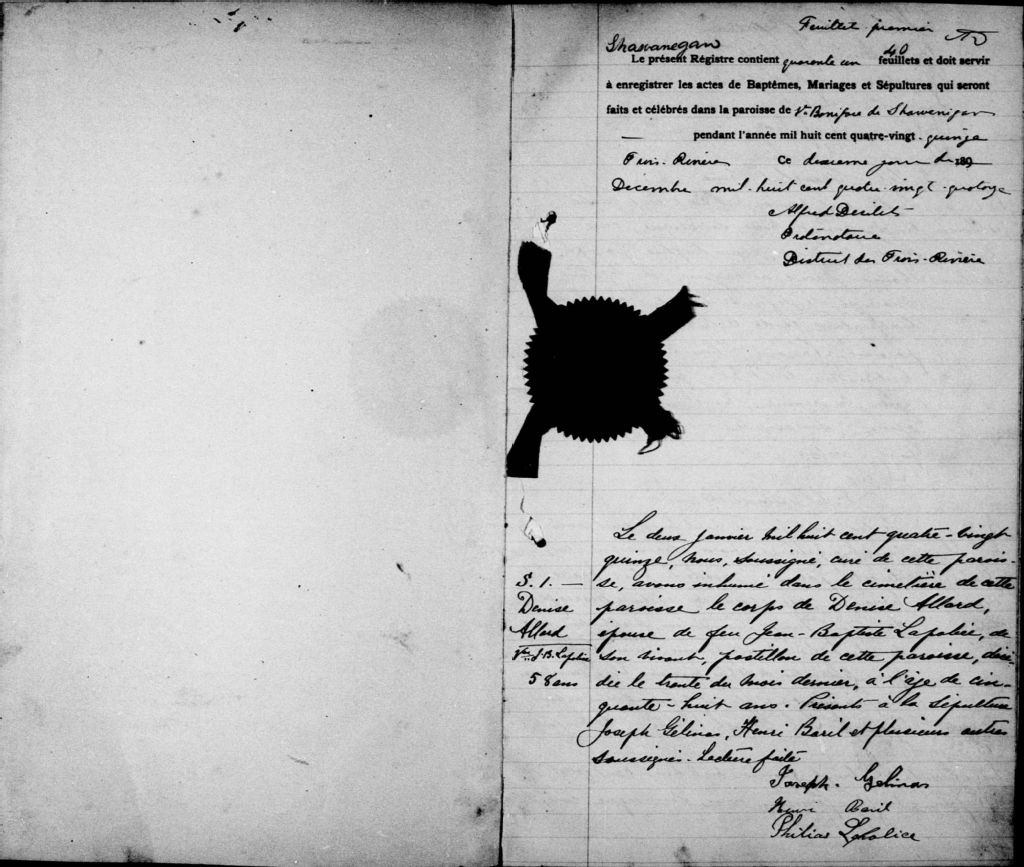 Feuillet premier AD
Shawanegan
Le présent Régistre contient quarante un 40 feuillets et doit servir
à enregistrer les actes de Baptêmes, Mariages et Sépultures qui seront
faits et célébrés dans la paroisse de St Boniface de Shawenigan
pendant l'année mil huit cent quatre-vingt-quinze
Trois-Rivières Ce deuxième jour de 189
Décembre mil-huit cent quatre-vingt-quatorze
Alfred Desilets
Protonotaire
District des Trois-Rivière
Le deux janvier mil huit cent quatre-vingt
quinze, nous, soussigné, curé de cette parois-
S. 1. — se, avons inhumé dans le cimetière de cette
Denise paroisse le corps de Denise Allard,
Allard épouse de feu Jean-Baptiste Lapolice, de
Vve J. B. Lapolice son vivant, postillon de cette paroisse, décé-
58 ans dée le trente du mois dernier, à l'âge de cin-
quante-huit ans. Présents à la sépulture
Joseph Gélinas, Henri Baril et plusieurs autres
soussignés. Lecture faite
Joseph Gelinas
Henri Baril
Philias Lapolice